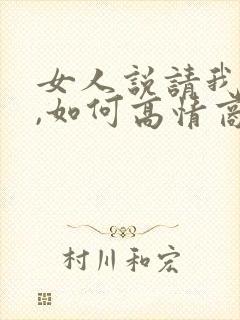 女人説請我
,如何高情商
村川和宏